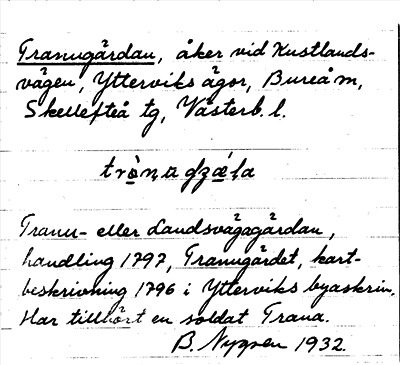 Tranugärdan, åker vid Kustlands-
vägen, Ytterviks ägor, Bureå m,
Skellefteå tg, Västerb. l.
Tranu- eller Landsvägagärdan,
handling 1797, Tranugärdet, kart-
beskrivning 1796 i Ytterviks byaskrin.
Har tillhört en soldat Trana.
B. 1932